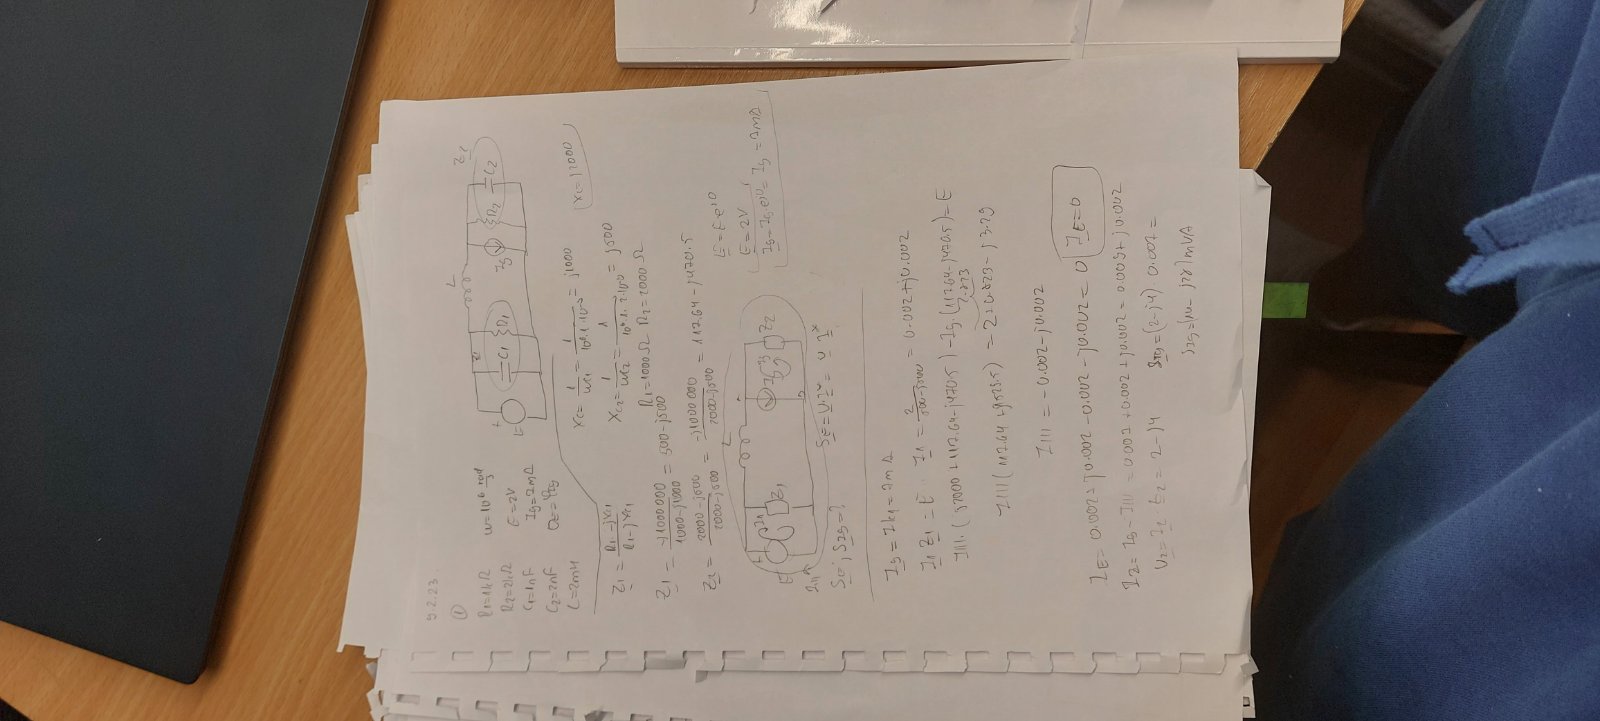 9.2.23.
①
R1=1kΩ ω=10⁶ rad/s
R2=2kΩ E=2V
C1=1nF Ig=7mA
C2=2nF θE=φIg
L=2mH
L
E C1 R1 Ig R2 C2 Z2
XC1=1/ωC1=1/10⁶·1·10⁻⁹=j1000 XL=j2000
Z1=R1·-jXC1/R1-jXC1 XC2=1/ωC2=1/10⁶·1·2·10⁻⁹=j500
R1=1000Ω R2=2000Ω
Z1=-j1000000/1000-j1000=500-j500
Z2=2000-j500/2000-j500=-j1000000/2000-j500=117.64-j470.5
E=Ee^j0
E=2V
Ig=Ig·e^j0=Ig=7mA
L
E I1 Z1 Ig Z2
SE; SIg=? SE=U·I*=U I*
Ig=Ik1=7mA
I1 Z1=E I1=2/500-j500=0.002+j0.002
III·(j2000+117.64-j470.5)-Ig·(117.64-j470.5)=E
III(117.64+j1529.5)=2+0.823-j3.29
III=-0.002-j0.002
IE=0.002+j0.002-0.002-j0.002=0 IE=0
I2=Ig-III=0.007+0.002+j0.002=0.009+j0.002
U2=I2·Z2=2-j4 SIg=(2-j4)·0.007=
SIg=(14-j28)mVA